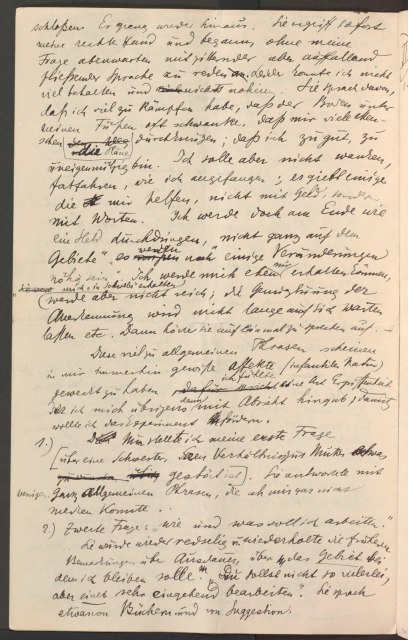 schloßen. Er ging wieder hinaus. Sie ergriff sofort
meine rechte Hand und begann, ohne meine
Frage abzuwarten mit zitternder aber auffallend
fließender Sprache zu reden. Leider konnte ich nicht
viel behalten und nichts notieren. Sie sprach davon,
daß ich viel zu kämpfen habe, daß der Boden unter
meinen Füßen oft schwanke, daß mir viele
schen die Hand, daß ich zu gut, zu
uneigennützig bin. Ich solle aber nicht wanken,
fortfahren, wie ich angefangen; es giebt einige
die mir helfen, nicht mit Geld, sondern
mit Worten. Ich werde doch am Ende wie
ein Held durchdringen, nicht ganz auf dem
Gebiete es werden noch einige Veränderungen
nötig sein". Ich werde mich eben erhalten können,
werde aber nicht reich; die Genugtuung der
Anerkennung wird nicht lange auf sich warten
lassen etc. Dann hörte sie auf einmal zu sprechen auf. —
Den viel zu allgemeinen Phrasen scheinen
in mir immerhin gewisse Affekte (infantiler Natur)
geweckt zu haben, ich fühlte eine Art Ergriffenheit
der ich mich übrigens dann mit Absicht hingab; damit
wollte ich das Experiment fördern.
1.) Nun stellte ich meine erste Frage
(über eine Schwester, deren Verhältnis zur Mutter etwas
gestört ist). Sie antwortete mit
wenigen, ganz allgemeinen Phrasen, die ich mir gar nicht
merken konnte.
2.) Zweite Frage: "wie und was soll ich arbeiten."
Sie wurde wieder redselig u. wiederholte die früheren
Bemerkungen über Ausdauer, über das Gebiet bei
dem ich bleiben solle. "Du sollst nicht so vielerlei,
aber eines sehr eingehend bearbeiten". Sie sprach
etwas von Büchern und von Suggestion.